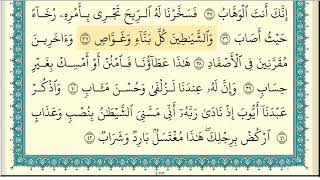 إِنَّكَ أَنتَ ٱلْوَهَّابُ ٣٥ فَسَخَّرْنَا لَهُ ٱلرِّيحَ تَجْرِى بِأَمْرِهِۦ رُخَآءً
حَيْثُ أَصَابَ ٣٦ وَٱلشَّيَٰطِينَ كُلَّ بَنَّآءٍ وَغَوَّاصٍ ٣٧ وَءَاخَرِينَ
مُقَرَّنِينَ فِى ٱلْأَصْفَادِ ٣٨ هَٰذَا عَطَآؤُنَا فَٱمْنُنْ أَوْ أَمْسِكْ بِغَيْرِ
حِسَابٍ ٣٩ وَإِنَّ لَهُۥ عِندَنَا لَزُلْفَىٰ وَحُسْنَ مَـَٔابٍ ٤٠ وَٱذْكُرْ
عَبْدَنَآ أَيُّوبَ إِذْ نَادَىٰ رَبَّهُۥٓ أَنِّى مَسَّنِىَ ٱلشَّيْطَٰنُ بِنُصْبٍ وَعَذَابٍ
٤١ ٱرْكُضْ بِرِجْلِكَ ۖ هَٰذَا مُغْتَسَلٌۢ بَارِدٌ وَشَرَابٌ ٤٢